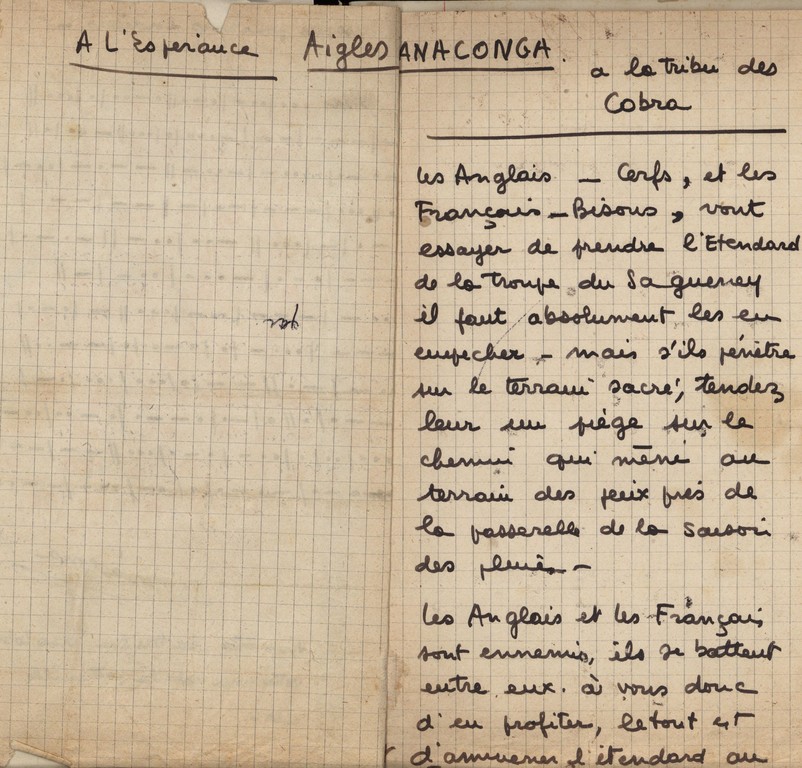 A L'Esperance Aigles ANACONGA.
a la tribu des
Cobra
les Anglais - Cerfs, et les
Français - Bisons, vont
essayer de prendre l'Etendard
de la troupe du Sagueney
il faut absolument les en
empecher - mais s'ils pénètre
sur le terrain sacré, tendez
leur un piège sur le
chemin qui mène au
terrain des jeux près de
la passerelle de la saison
des pluies -
les Anglais et les Français
sont ennemis, ils se battent
entre eux. à vous donc
d'en profiter, le tout est
d'ammener l'étendard au